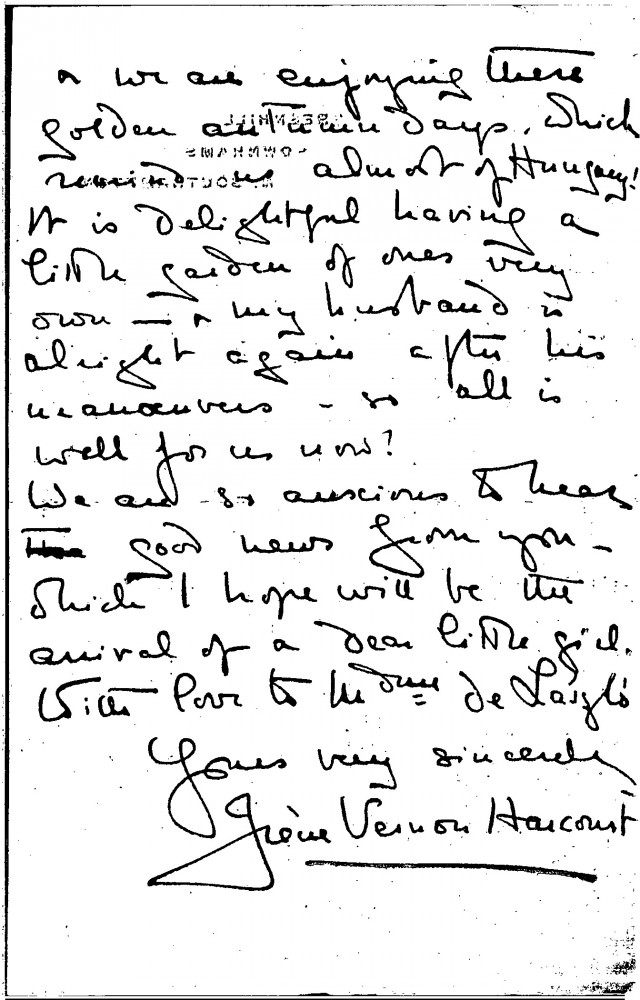 & we are enjoying these
golden autumn days, which
remind us almost of Hungary!
It is delightful having a
little garden of ones very
own — & my husband is
alright again after his
manœuvers – so all is
well for us now!
We are so anxious to hear
good news from you –
which I hope will be the
arrival of a dear little girl.
With love to Mdme de László
Yours very sincerely
Irène Vernon Harcourt